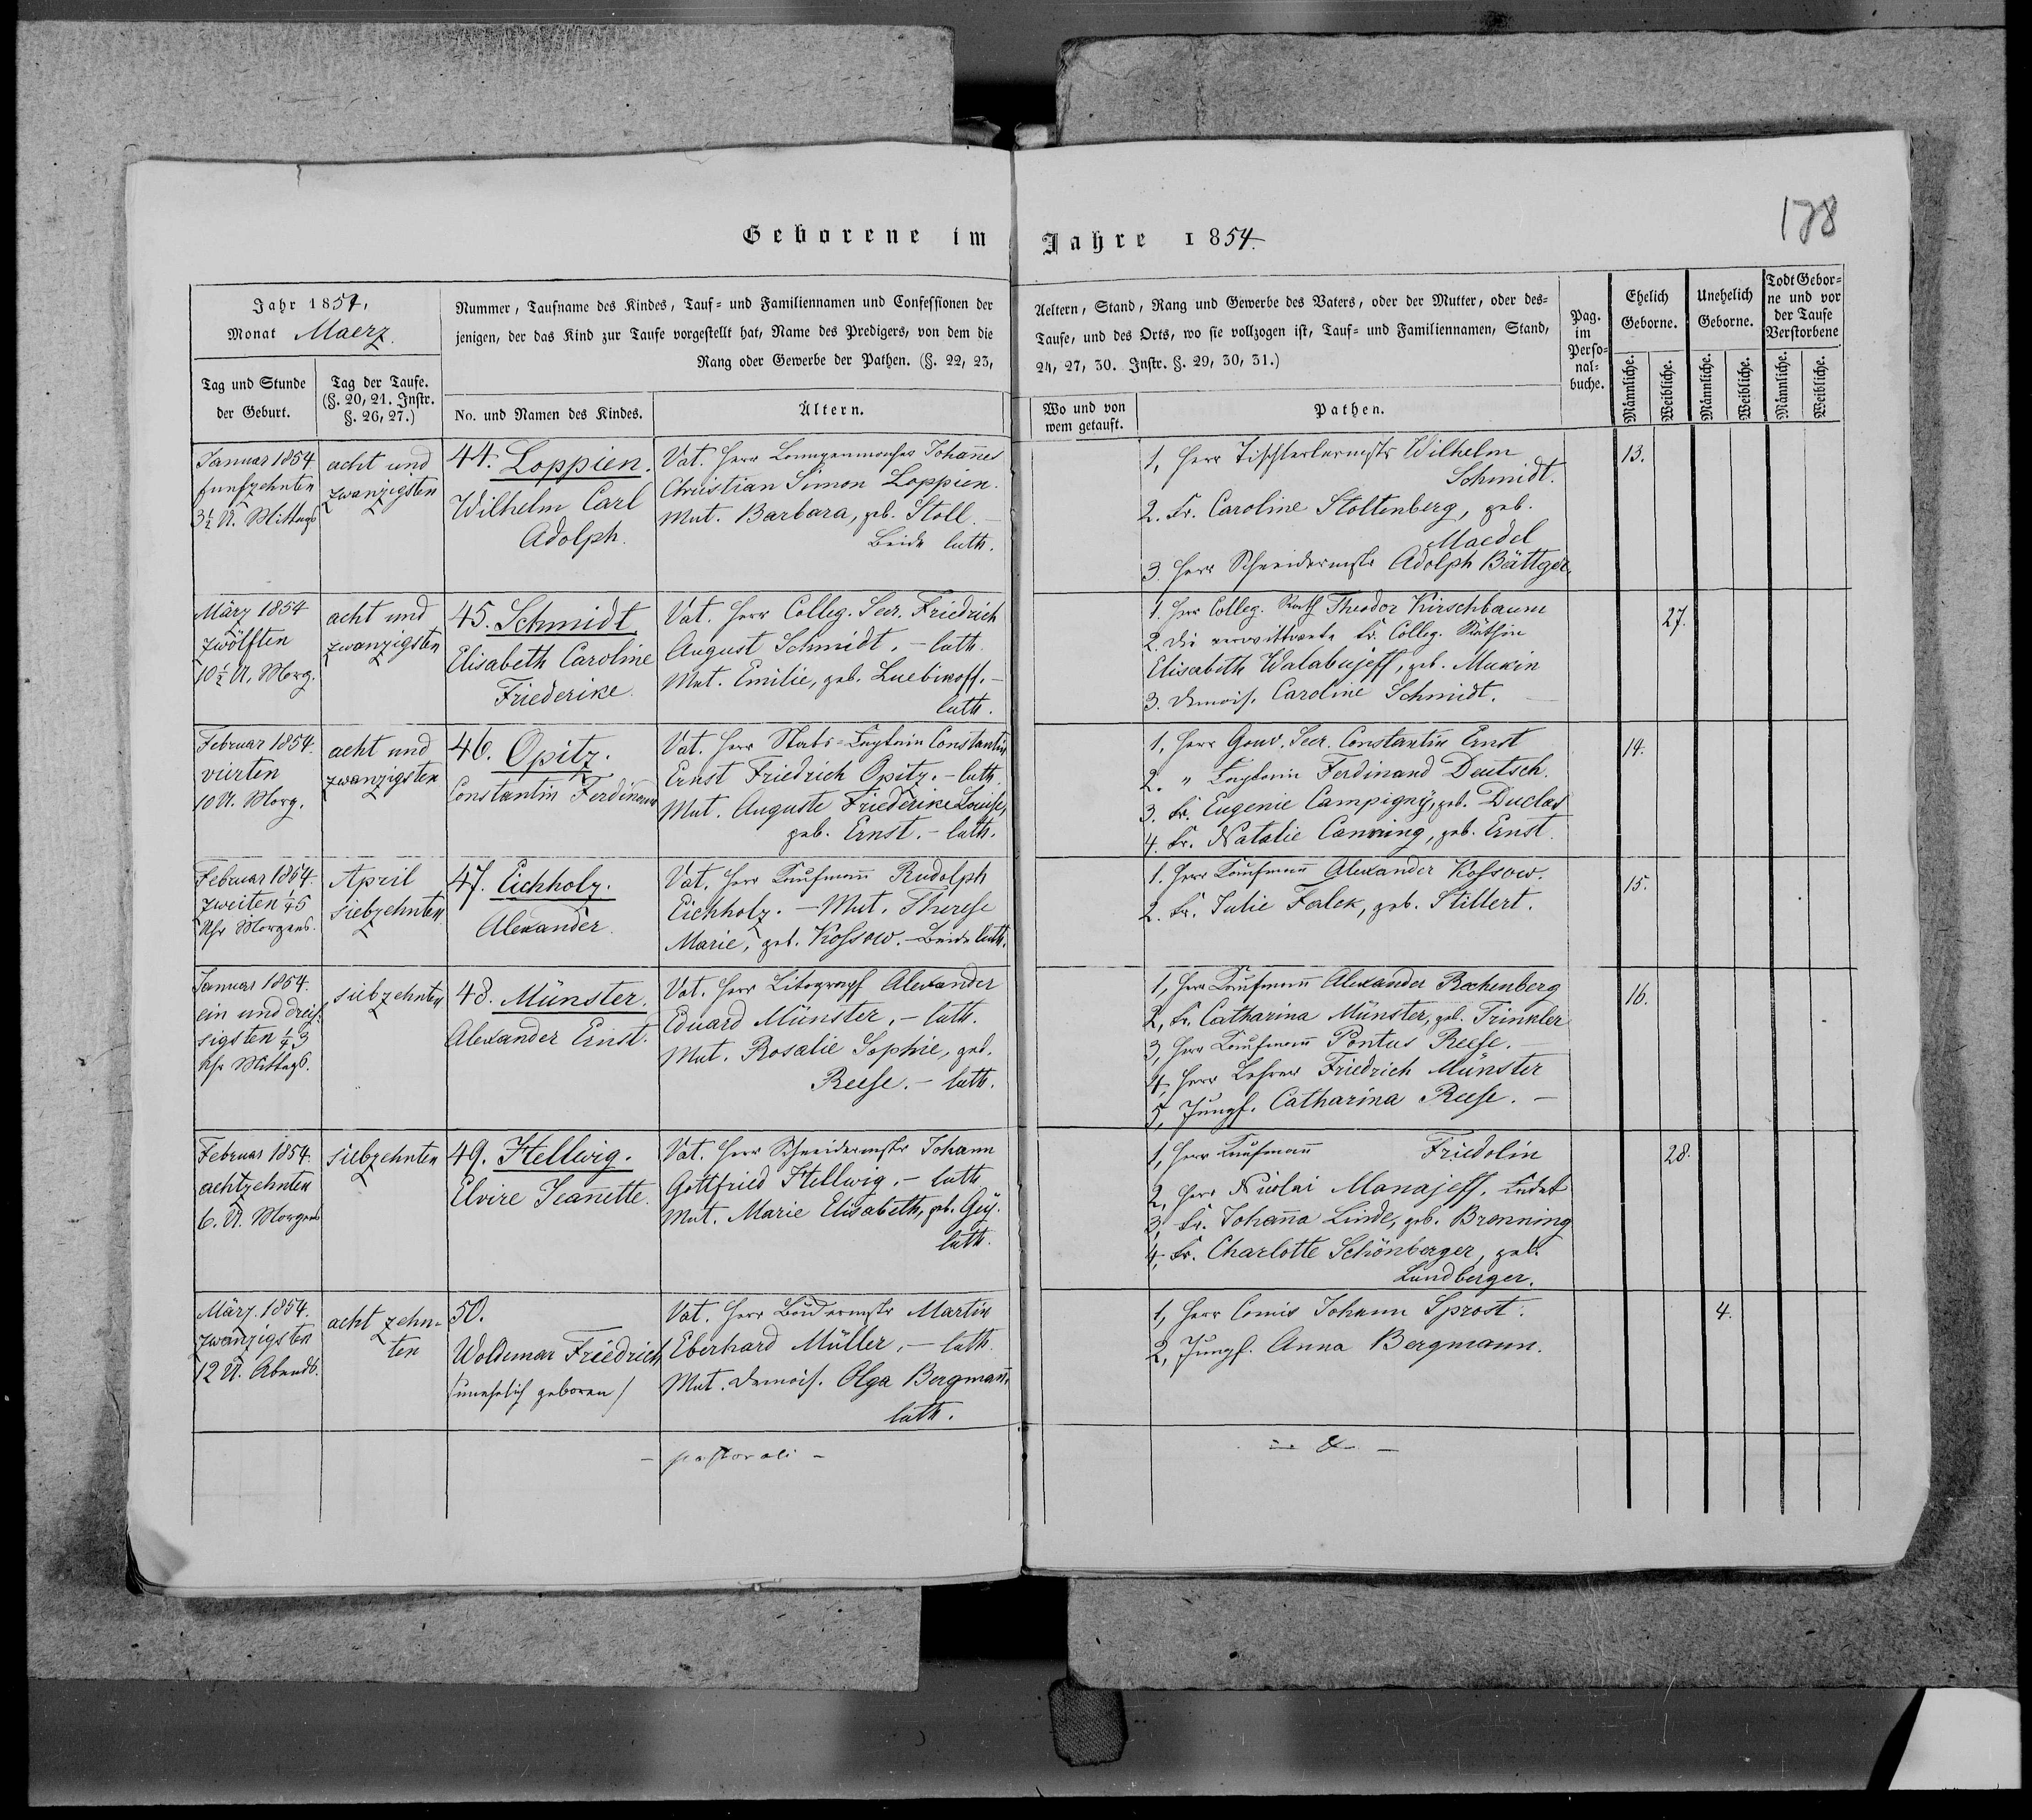 178
Geborene im Jahre 1854.
Jahr 1854,
Monat Maerz.
Nummer, Taufname des Kindes, Tauf- und Familiennamen und Confessionen der
jenigen, der das Kind zur Taufe vorgestellt hat, Name des Predigers, von dem die
Rang oder Gewerbe der Pathen. (§. 22, 23,
Tag und Stunde
der Geburt.
Tag der Taufe.
(§. 20, 21. Instr.
§. 26, 27.)
No. und Namen des Kindes.
Ältern.
Aeltern, Stand, Rang und Gewerbe des Vaters, oder der Mutter, oder des-
Taufe, und des Orts, wo sie vollzogen ist, Tauf- und Familiennamen, Stand,
24, 27, 30. Instr. §. 29, 30, 31.)
Wo und von
wem getauft.
Pathen.
Pag.
im
Perso-
nal-
buche.
Ehelich
Geborne.
Unehelich
Geborne.
Todt Gebor-
ne und vor
der Taufe
Verstorbene
Männliche.
Weibliche.
Männliche.
Weibliche.
Männliche.
Weibliche.
Januar 1854
funfzehnten
3½ U. Mittags
acht und
zwanzigsten
44. Loppien.
Wilhelm Carl
Adolph.
Vat. Herr Johannes
Christian Simon Loppien.
Mut. Barbara, geb. Stoll. –
Beide luth.
1, Herr Wilhelm
Schmidt.
2. Fr. Caroline Stoltenberg, geb.
Maedel
3. Herr Schneidermstr Adolph Bättger.
13.
März 1854
zwölften
10½ U. Morg.
acht und
zwanzigsten
45. Schmidt
Elisabeth Caroline
Friederike.
Vat. Herr Colleg. Secr. Friedrich
August Schmidt. – luth.
Mut. Emilie, geb. Luebikoff. –
luth.
1. Herr Colleg. Rath Theodor Kirschbaum
2. die verwittwete Fr. Colleg. Räthin
Elisabeth Walabujeff, geb. Mukin
3. Demois. Caroline Schmidt.
27.
Februar 1854.
vierten
10 U. Morg.
acht und
zwanzigsten
46. Opitz.
Constantin Ferdinand
Vat. Herr Stabs-Capitain Constantin
Ernst Friedrich Opitz. – luth.
Mut. Auguste Friederike Louise,
geb. Ernst. – luth.
1, Herr Gouv. Secr. Constantin Ernst
2. " Capitain Ferdinand Deutsch.
3. Fr. Eugenie Campigny, geb. Duclas
4. Fr. Natalie Canning, geb. Ernst.
14.
Februar 1854.
zweiten ¼5
Uhr Morgens.
April
siebzehnten
47. Eichholz.
Alexander.
Vat. Herr Kaufmann Rudolph
Eichholz. – Mut. Therese
Marie, geb. Kossow. – Beide luth.
1. Herr Kaufmann Alexander Kossow.
2. Fr. Julie Falck, geb. Stillert.
15.
Januar 1854.
ein und dreis-
sigsten ¼3
Uhr Mittags.
siebzehnten
48. Münster.
Alexander Ernst.
Vat. Herr Litograph Alexander
Eduard Münster. – luth.
Mut. Rosalie Sophie, geb.
Reese. – luth.
1, Herr Kaufmann Alexander Rochenberg
2, Fr. Catharina Münster, geb. Trinkler
3, Herr Kaufmann Pontus Reese. –
4, Herr Lehrer Friedrich Münster
5, Jungf. Catharina Reese. –
16.
Februar 1854.
achtzehnten
6. U. Morgens
siebzehnten
49. Hellwig.
Elvire Jeanette.
Vat. Herr Schneidermstr Johann
Gottfried Hellwig. – luth
Mut. Marie Elisabeth, geb. Gey.
luth.
1, Herr Kaufmann Friedolin
2, Herr Nicolai Manajeff.
3, Fr. Johanna Linde, geb. Bronning
4, Fr. Charlotte Schönberger, geb.
Lundberger.
28.
März. 1854.
zwanzigsten
12 U. Abends.
acht zehn-
ten
50.
Woldemar Friedrich
/unehelich geboren/
Vat. Herr Martin
Eberhard Müller. – luth.
Mut. Demois. Olga Bergmann.
luth.
1, Herr Comis Johann Sprost.
2, Jungf. Anna Bergmann.
4.